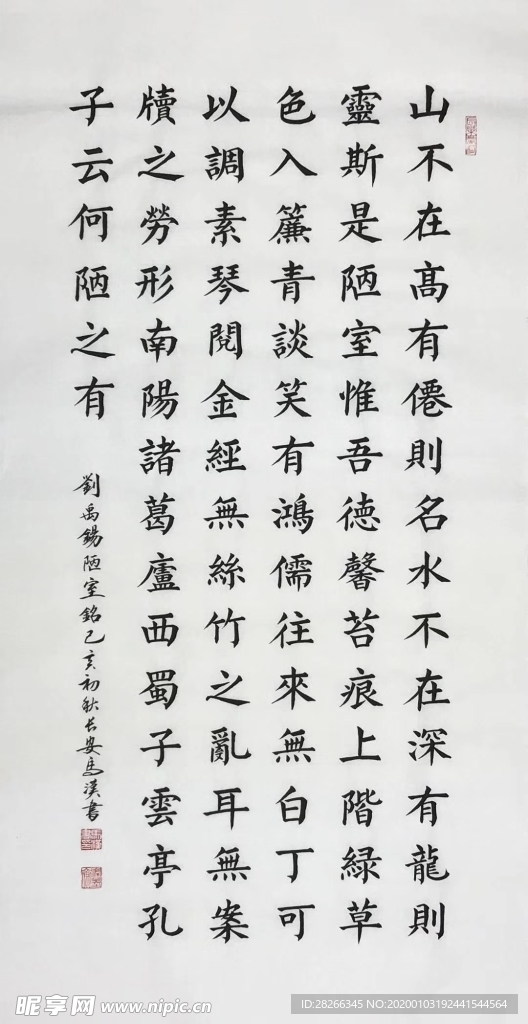 山不在髙有僊則名水不在深有龍則
靈斯是陋室惟吾徳馨苔痕上階緑草
色入簾青談笑有鴻儒往來無白丁可
以調素琴閱金經無絲竹之亂耳無案
牘之勞形南陽諸葛廬西蜀子雲亭孔
子云何陋之有
劉禹錫陋室銘乙亥初秋長安馬漢書
昵享网 www.nipic.cn
ID:28266345 NO:20200103192441544564